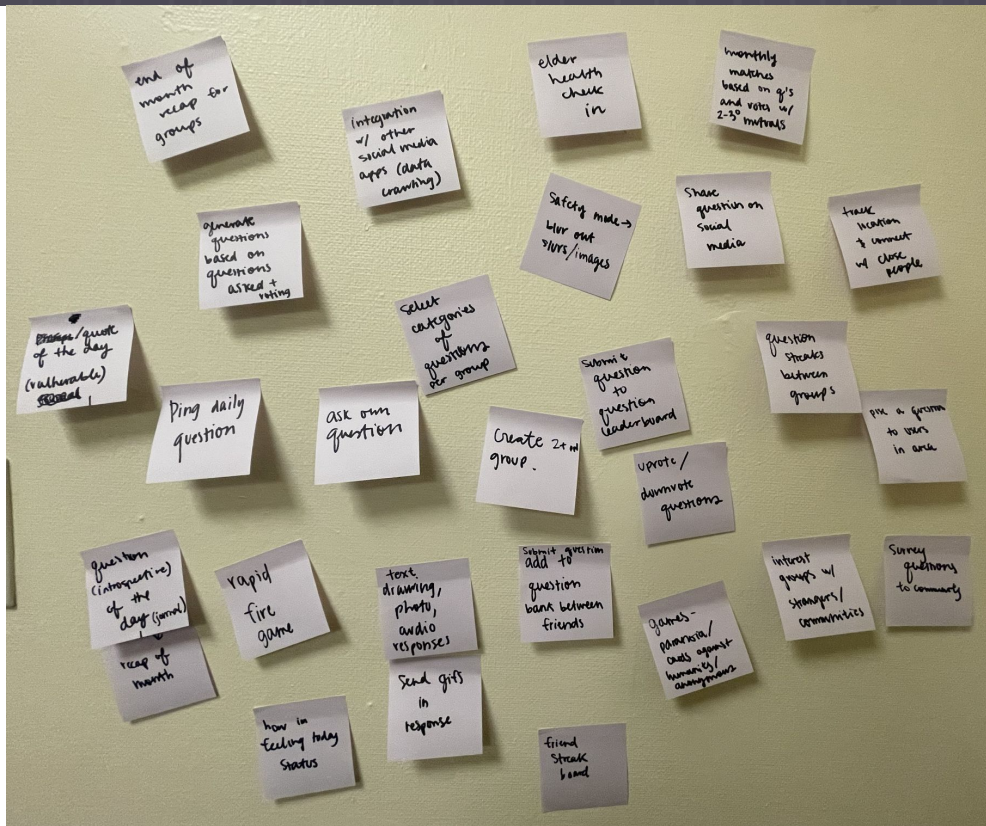 end of
month
recap for
groups
integration
w/ other
social media
apps (data
crawling)
elder
health
check
in
monthly
matches
based on q's
and votes w/
2-3° mutuals
generate
questions
based on
questions
asked +
voting
Safety mode →
blur out
slurs/images
Share
question on
social
media
track
location
& connect
w/ close
people
/quote
of the day
(vulnerable)
select
categories
of
questions
per group
Submit
question
to
question
leaderboard
question
streaks
between
groups
Ping daily
question
ask own
question
Create 2+
group.
upvote/
downvote
questions
a question
to users
in area
question
(introspective)
of the
day (journal)
recap of
month
rapid
fire
game
text,
drawing,
photo,
audio
responses
Send gifs
in
response
Submit question
add to
question
bank between
friends
games -
paranoia/
cards against
humanity/
anonymous
interest
groups w/
strangers/
communities
Survey
questions
to community
how im
feeling today
status
friend
streak
board